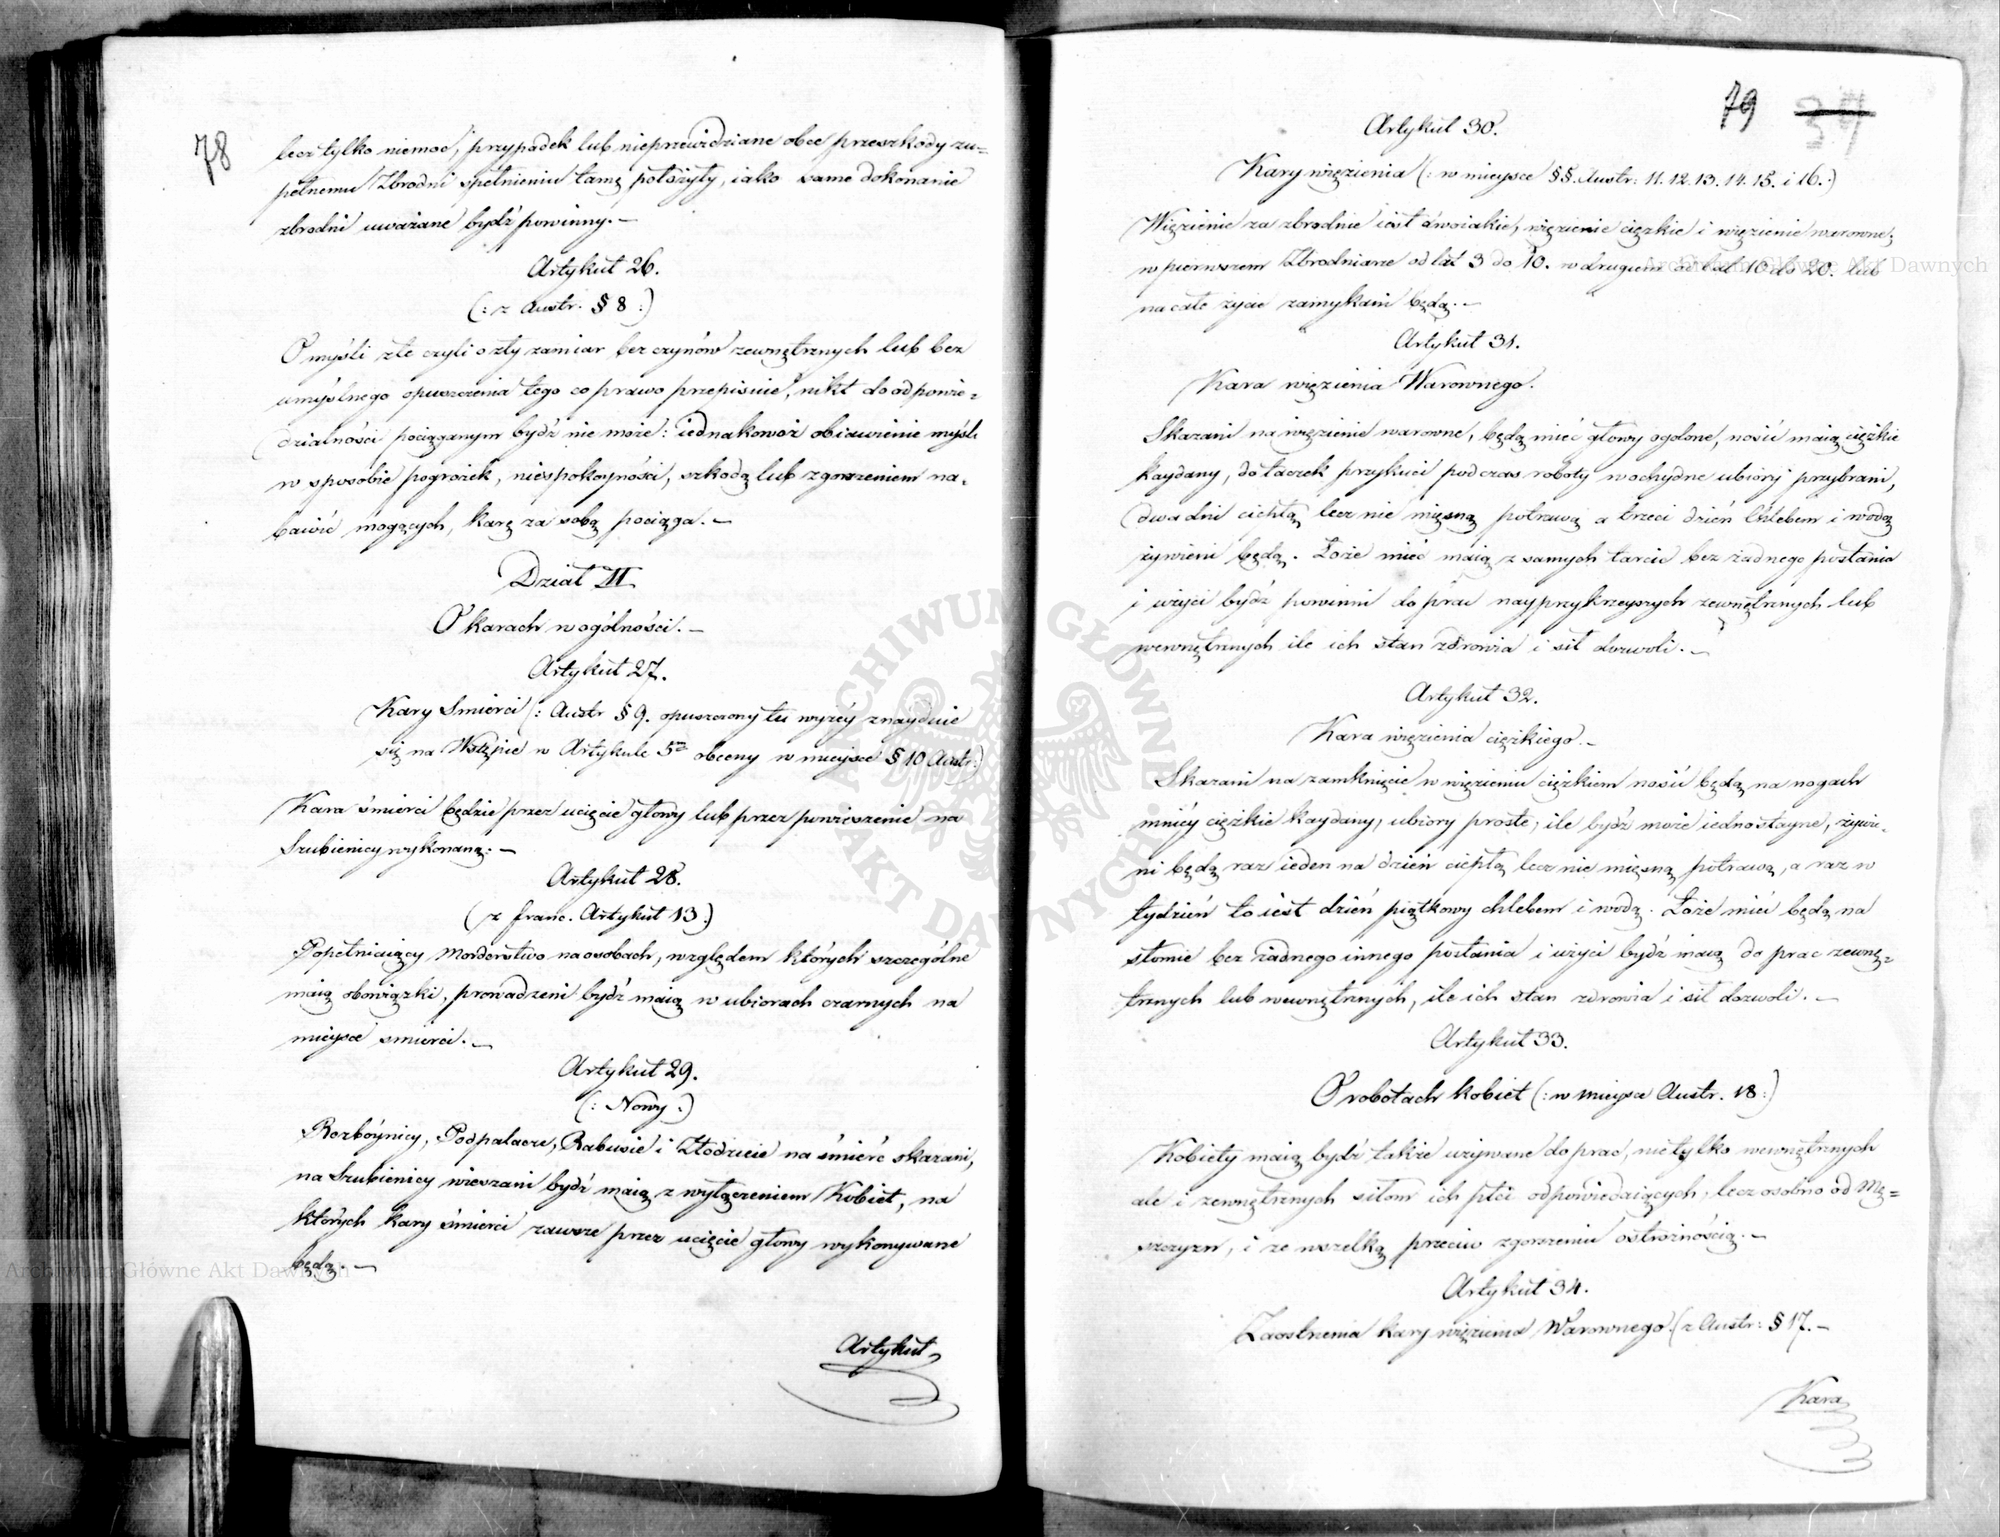 78
lecz tylko niemoc, przypadek lub nieprzewidziane obce przeszkody zu=
pełnemu Zbrodni spełnieniu tamę położyły, iako same dokonanie
zbrodni uważane bydź powinny. —
Artykuł 26.
(: z Austr. § 8 :)
O myśli złe czyli o zły zamiar bez czynów zewnętrznych lub bez
umyślnego opuszczenia tego co prawo przepisuie, nikt do odpowie=
dzialności pociąganym bydź nie może: iednakowoż obiawienie myśli
w sposobie pogrożek, niespokoyności, szkodą lub zgorszeniem na=
bawić mogących, karę za sobą pociąga. —
Dział II
O karach w ogólności. —
Artykuł 27.
Kary Smierci (: Austr § 9. opuszczony tu wyżéy znayduie
się na Wstępie w Artykule 5m obecny w mieysce § 10 Austr:)
Kara śmierci będzie przez ucięcie głowy lub przez powieszenie na
Szubienicy wykonaną. —
Artykuł 28.
(z franc. Artykuł 13.)
Popełniaiący morderstwo na osobach, względem których szczególne
maią obowiązki, prowadzeni bydź maią w ubiorach czarnych na
mieysce smierci. —
Artykuł 29.
(: Nowy :)
Rozbóynicy, Podpalacze, Rabusie i Złodzieie na śmierć skazani,
na Szubienicy wieszani bydź maią z wyłączeniem Kobiet, na
których kary śmierci zawsze przez ucięcie głowy wykonywane
będą. —
Artykuł
79 37
Artykuł 30.
Kary więzienia (: w mieysce §§. Austr: 11. 12. 13. 14. 15. i 16. :)
Więzienie za zbrodnie iest dwoiakie, więzienie ciężkie i więzienie warowne;
w pierwszem Zbrodniarze od lat 3 do 10. w drugiem od lat 10 do 20. lub
na całe życie zamykani będą. —
Artykuł 31.
Kara więzienia Warownego.
Skazani na więzienie warowne, będą mieć głowy ogolone, nosić maią ciężkie
kaydany, do taczek przykuci podczas roboty w ochydne ubiory przybrani,
dwa dni ciepłą lecz nie mięsną potrawą a trzeci dzień Chlebem i wodą
żywieni będą. Łoże mieć maią z samych tarcic bez żadnego posłania
i użyci bydź powinni do prac nayprzykrzeyszych zewnętrznych lub
wewnętrznych ile ich stan zdrowia i sił dozwoli. —
Artykuł 32.
Kara więzienia ciężkiego. —
Skazani na zamknięcie w więzieniu ciężkiem nosić będą na nogach
mniéy ciężkie kaydany, ubiory proste, ile bydź może iednostayne, żywie=
ni będą raz ieden na dzień ciepłą lecz nie mięsną potrawą, a raz w
tydzień to iest dzień piątkowy chlebem i wodą. Łoże mieć będą na
słomie bez żadnego innego posłania i użyci bydź maią do prac zewnę=
trznych lub wewnętrznych, ile ich stan zdrowia i sił dozwoli. —
Artykuł 33.
O robotach kobiet (: w mieysce Austr. 18 :)
Kobiety maią bydź także używane do prac, nie tylko wewnętrznych
ale i zewnętrznych siłom ich płci odpowiedaiących, lecz osobno od Mę=
szczyzn, i ze wszelką przeciw zgorszeniu ostrożnością. —
Artykuł 34.
Zaostrzenia kary więzienia Warownego. (z Austr: § 17. —
Kara
ARCHIWUM GŁÓWNE AKT DAWNYCH
Archiwum Główne Akt Dawnych
Archiwum Główne Akt Dawnych